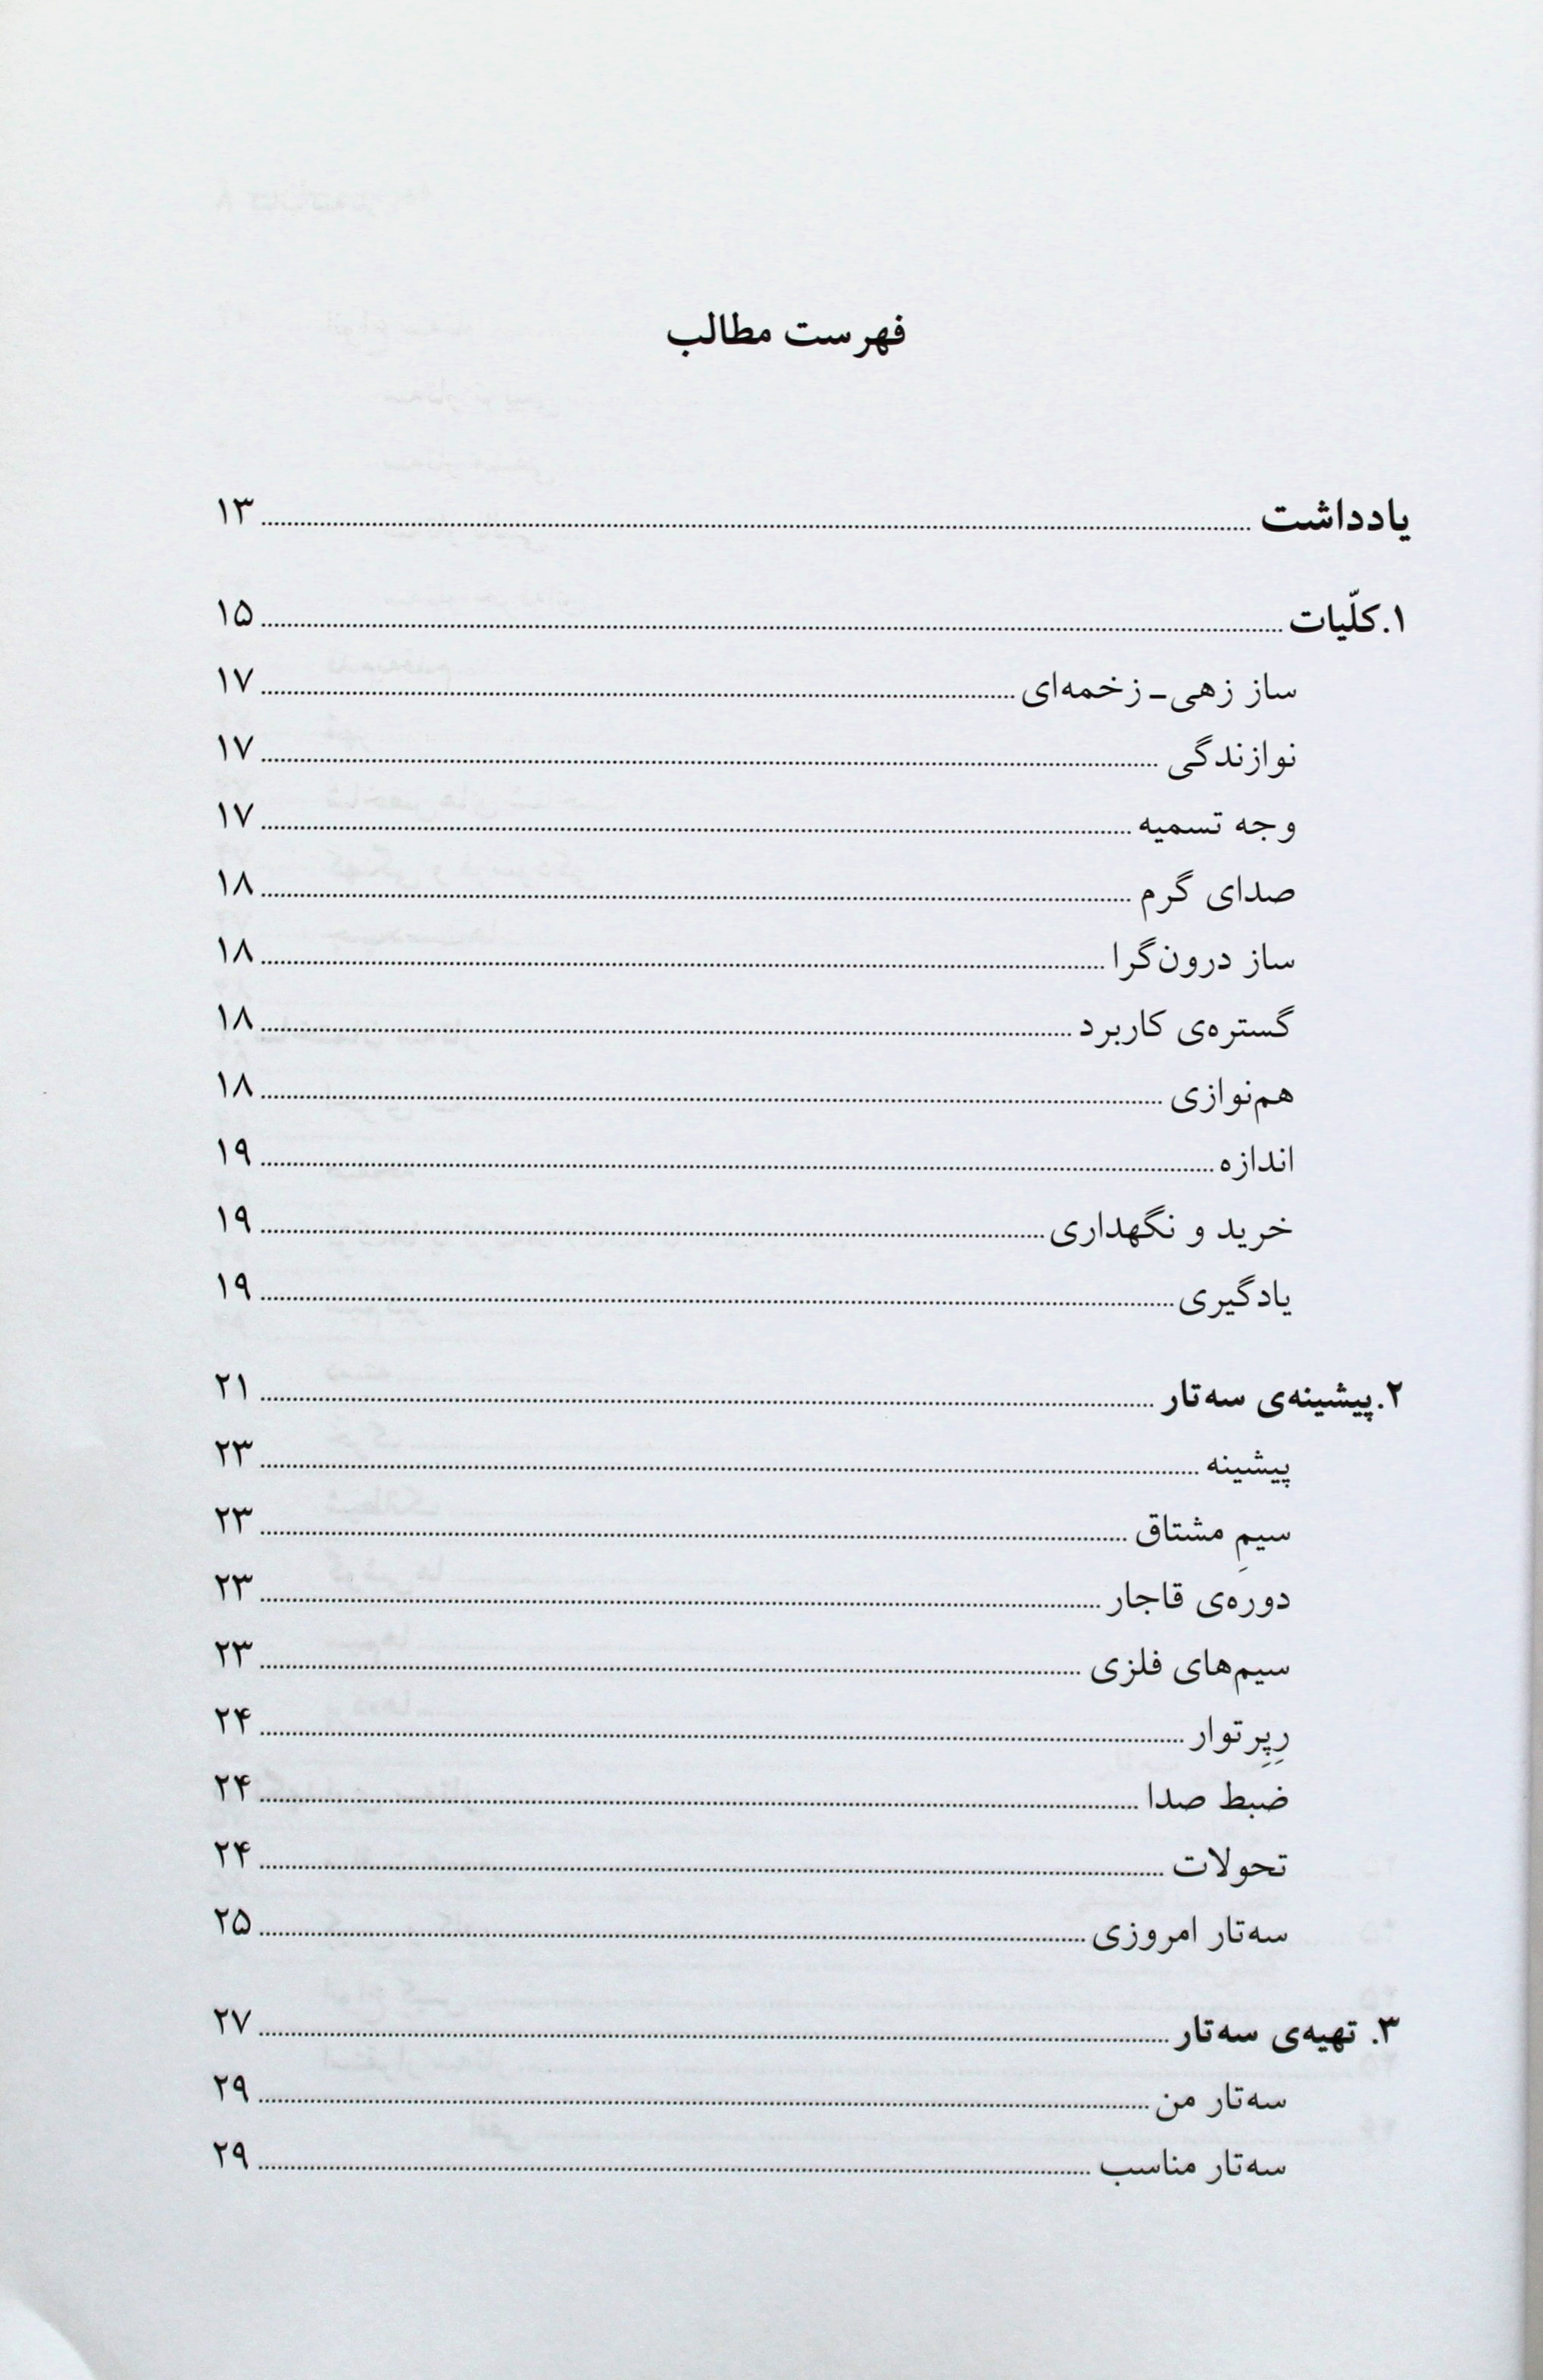 فهرست مطالب
یادداشت ........ ۱۳
۱.کلّیات ........ ۱۵
ساز زهی-زخمه‌ای ........ ۱۷
نوازندگی ........ ۱۷
وجه تسمیه ........ ۱۷
صدای گرم ........ ۱۸
ساز درون‌گرا ........ ۱۸
گستره‌ی کاربرد ........ ۱۸
هم‌نوازی ........ ۱۸
اندازه ........ ۱۹
خرید و نگهداری ........ ۱۹
یادگیری ........ ۱۹
۲.پیشینه‌ی سه‌تار ........ ۲۱
پیشینه ........ ۲۳
سیمِ مشتاق ........ ۲۳
دوره‌ی قاجار ........ ۲۳
سیم‌های فلزی ........ ۲۳
رِپِرتوار ........ ۲۴
ضبط صدا ........ ۲۴
تحولات ........ ۲۴
سه‌تار امروزی ........ ۲۵
۳. تهیه‌ی سه‌تار ........ ۲۷
سه‌تار من ........ ۲۹
سه‌تار مناسب ........ ۲۹